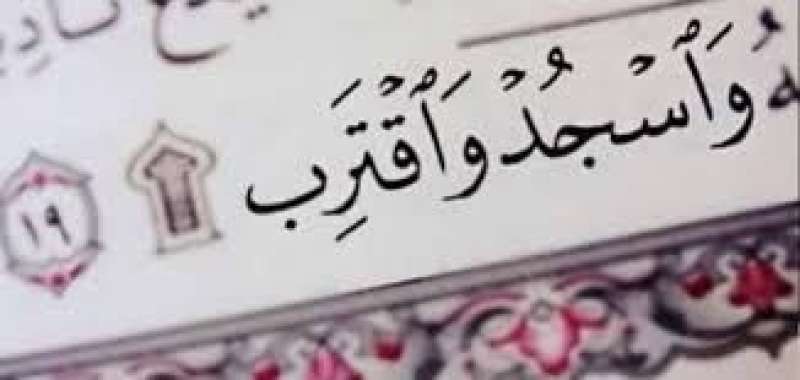 وَٱسْجُدْ وَٱقْتَرِب ۩ ١٩